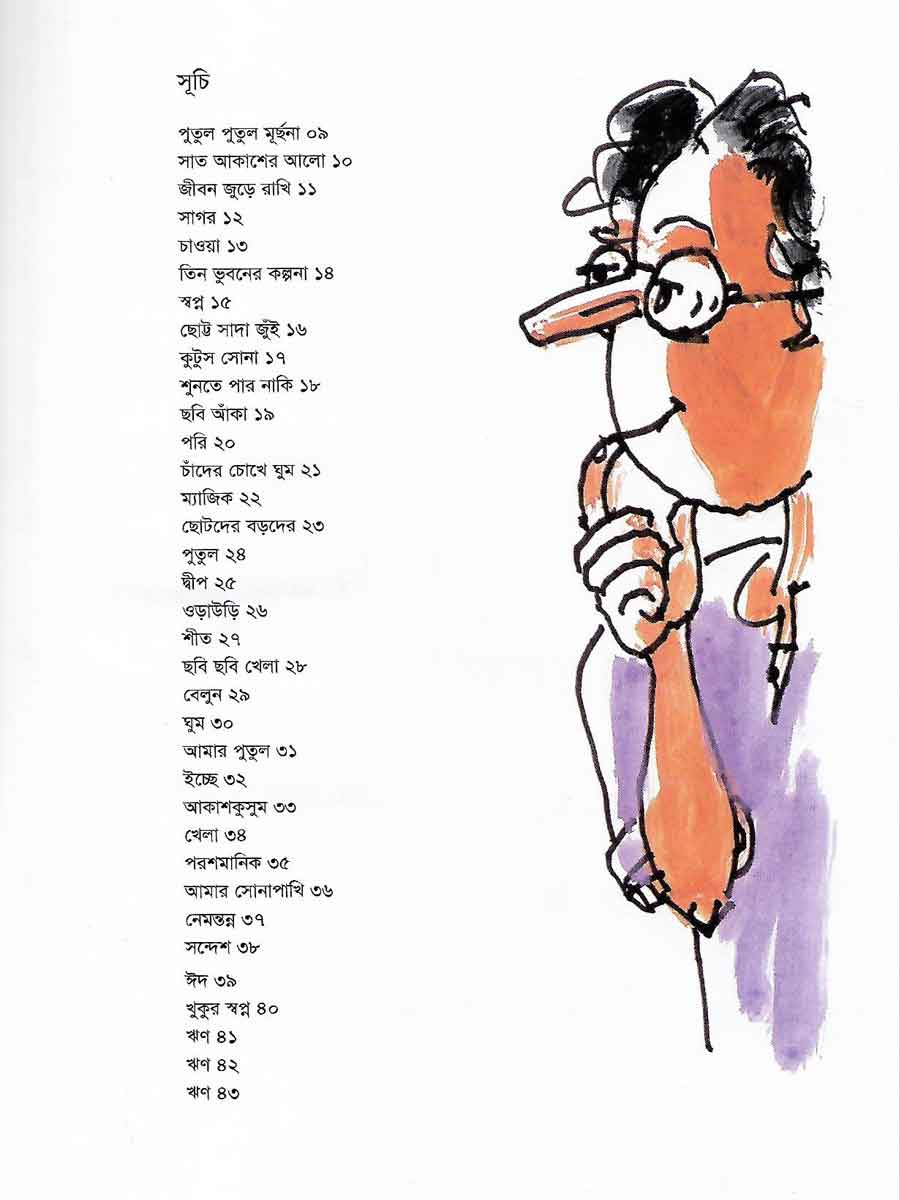 সূচি
পুতুল পুতুল মূর্ছনা ০৯
সাত আকাশের আলো ১০
জীবন জুড়ে রাখি ১১
সাগর ১২
চাওয়া ১৩
তিন ভুবনের কল্পনা ১৪
স্বপ্ন ১৫
ছোট্ট সাদা জুঁই ১৬
কুটুস সোনা ১৭
শুনতে পার নাকি ১৮
ছবি আঁকা ১৯
পরি ২০
চাঁদের চোখে ঘুম ২১
ম্যাজিক ২২
ছোটদের বড়দের ২৩
পুতুল ২৪
দ্বীপ ২৫
ওড়াউড়ি ২৬
শীত ২৭
ছবি ছবি খেলা ২৮
বেলুন ২৯
ঘুম ৩০
আমার পুতুল ৩১
ইচ্ছে ৩২
আকাশকুসুম ৩৩
খেলা ৩৪
পরশমানিক ৩৫
আমার সোনাপাখি ৩৬
নেমন্তন্ন ৩৭
সন্দেশ ৩৮
ঈদ ৩৯
খুকুর স্বপ্ন ৪০
ঋণ ৪১
ঋণ ৪২
ঋণ ৪৩